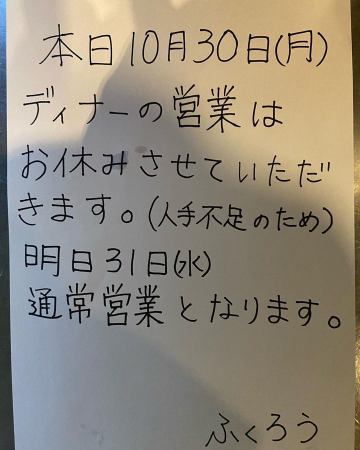 本日10月30日(月)
ディナーの営業は
お休みさせていただ
きます。(人手不足のため)
明日31日(水)
通常営業となります。
ふくろう